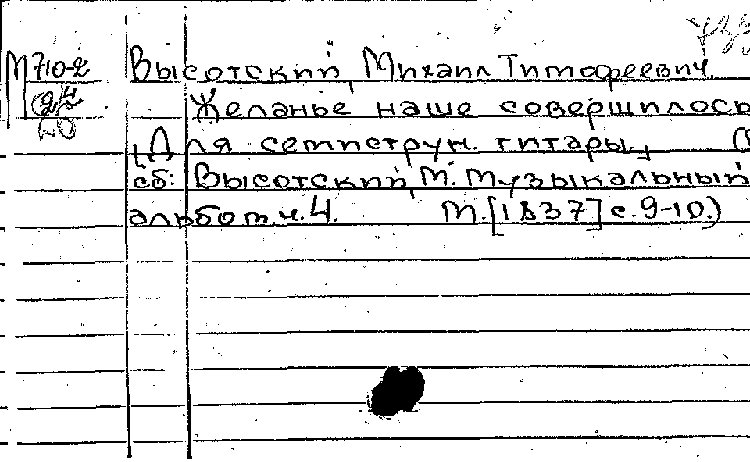 М710-2 Высотский, Михаил Тимофеевич
24 Желанье наше совершилось
[Для семиструн. гитары] (В
сб: Высотский, М. Музыкальный
альбом ч. 4. М. [1837] с. 9-10.)